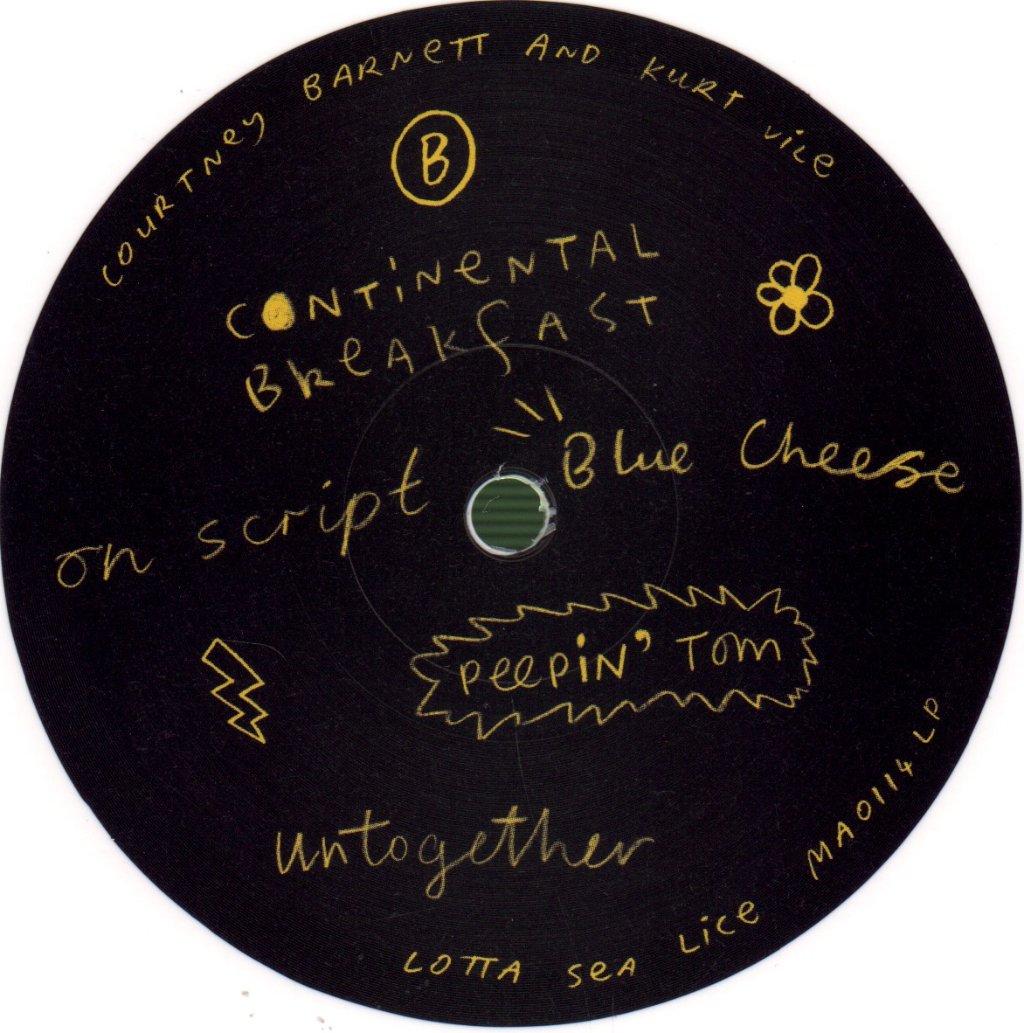 COURTNEY BARNETT AND KURT VILE
B
CONTINENTAL
BREAKFAST
on script
Blue Cheese
PEEPIN' TOM
untogether
LOTTA SEA LICE MA0114LP